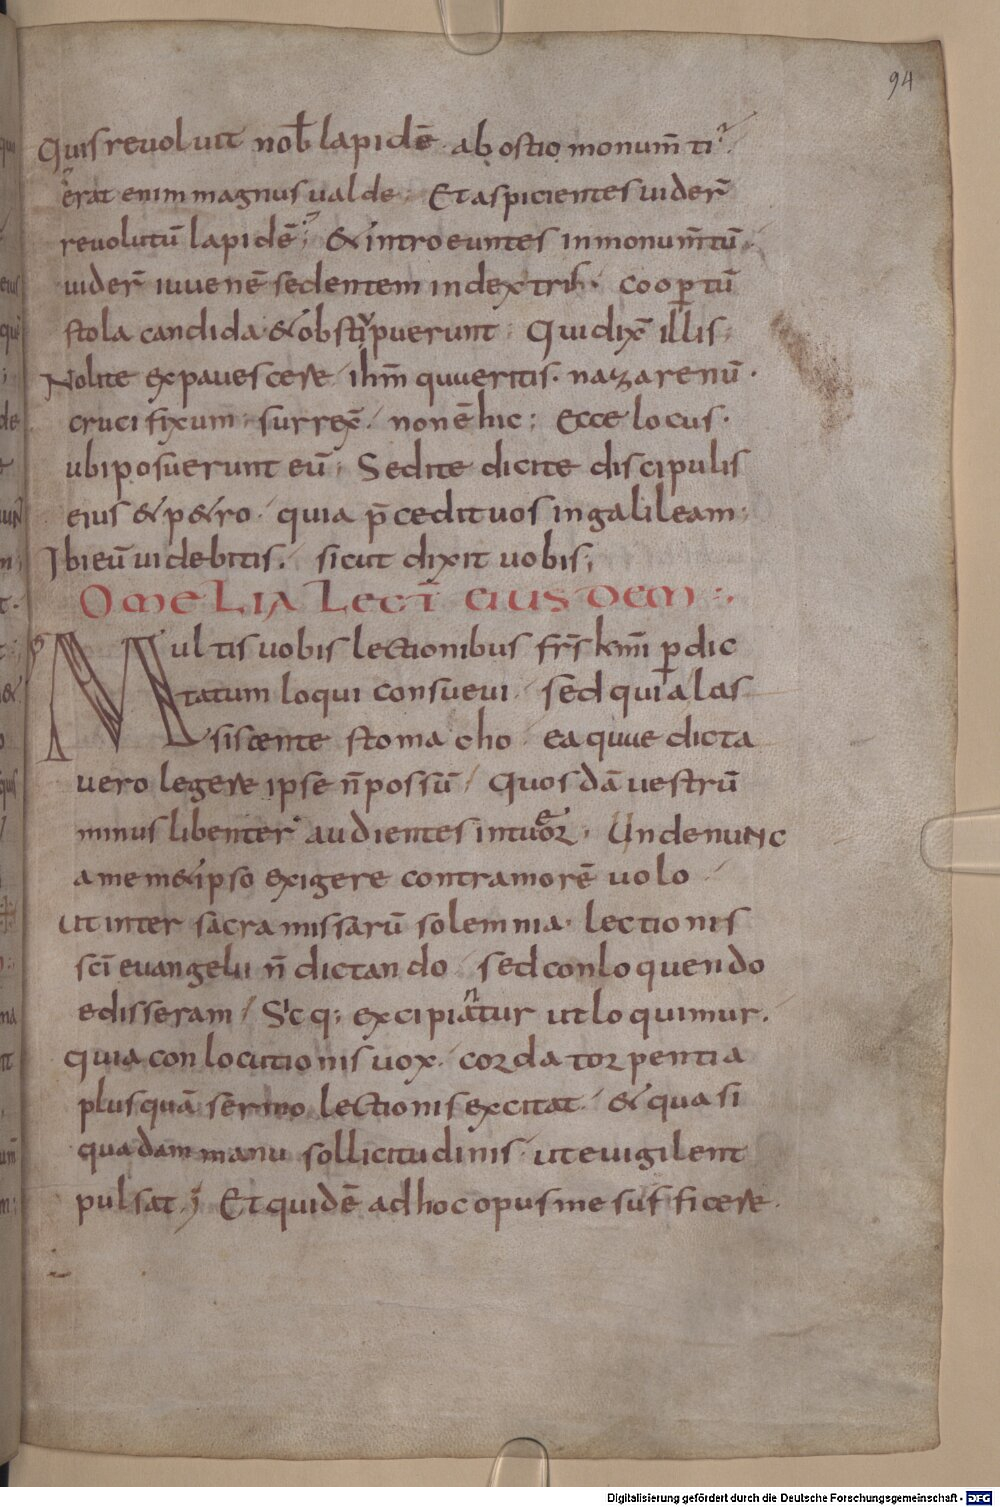 94
Quis revolvit nob̄ lapidē ab ostio monum̄ti?
erat enim magnus ualde; Et aspicientes uider̄
reuolutū lapidē; & introeuntes in monum̄tū.
uider̄ iuuenē sedentem in dextris. coop̱tū
stola candida & obstipuerunt. Qui dix̄ illis;
Nolite expauescere. ihm̄ quueritis. nazarenū.
crucifixum. surrex̄. non ē hic; Ecce locus.
ubi posuerunt eū; Sed ite dicite discipulis
eius & p&ro. quia p̄cedit uos in galileam;
Ibi eū uidebitis. sicut dixit uobis;
OMELIA LECT̄ EIUSDEM :.
Multis uobis lectionibus fr̄s km̄i p̱ dic
tatum loqui consueui. sed quia las
siscente stomacho. ea quue dicta
uero legere ipse n̄ possū. Quosdā uestrū
minus libenter audientes intueor. Unde nunc
a mem&ipso exigere contra morē uolo
ut inter sacra missarū solemnia. lectionis
sc̄i euangelii n̄ dictando. sed conloquendo
edisseram. Sicq; excipiantur ut loquimur.
quia conlocutionis uox. corda torpentia
plus quā sermo lectionis excitat. & quasi
quadam manu sollicitudinis. ut euigilent
pulsat; Et quidē ad hoc opus me sufficere.
Digitalisierung gefördert durch die Deutsche Forschungsgemeinschaft - DFG